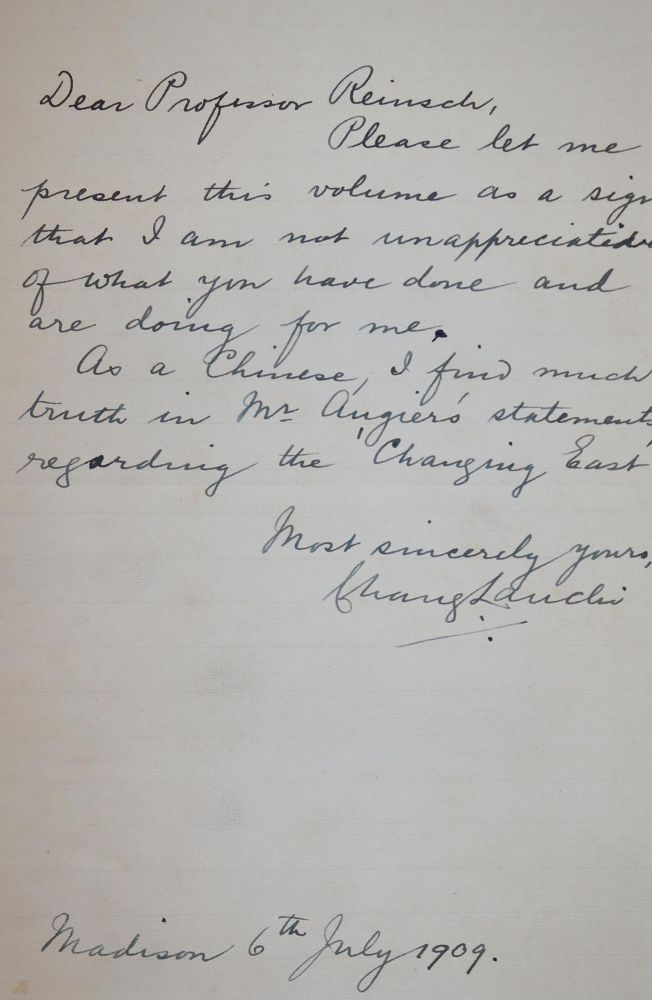 Dear Professor Reinsch,
Please let me
present this volume as a sign
that I am not unappreciative
of what you have done and
are doing for me.
As a Chinese, I find much
truth in Mr Angier's statements
regarding the 'Changing East
Most sincerely yours,
Chang Lauchi
Madison 6th July 1909.